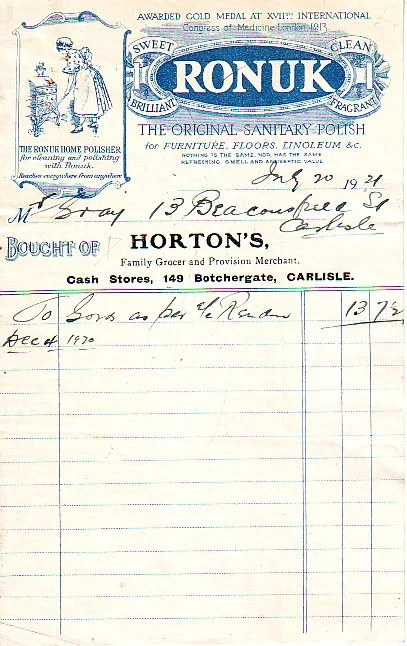 AWARDED GOLD MEDAL AT XVIITH INTERNATIONAL
Congress of Medicine London 1913
SWEET
CLEAN
RONUK
BRILLIANT
FRAGRANT
THE ORIGINAL SANITARY POLISH
for FURNITURE, FLOORS, LINOLEUM &c.
NOTHING IS THE SAME, NOR HAS THE SAME
REFRESHING SMELL AND ANTISEPTIC VALUE
THE RONUK HOME POLISHER
for cleaning and polishing
with Ronuk.
Reaches everywhere from anywhere
July 20 1921
Mr Gray 13 Beaconsfield St
Carlisle
BOUGHT OF HORTON'S,
Family Grocer and Provision Merchant,
Cash Stores, 149 Botchergate, CARLISLE.
To Goods as per a/c Rendered 13 7½
Dec 4 1920